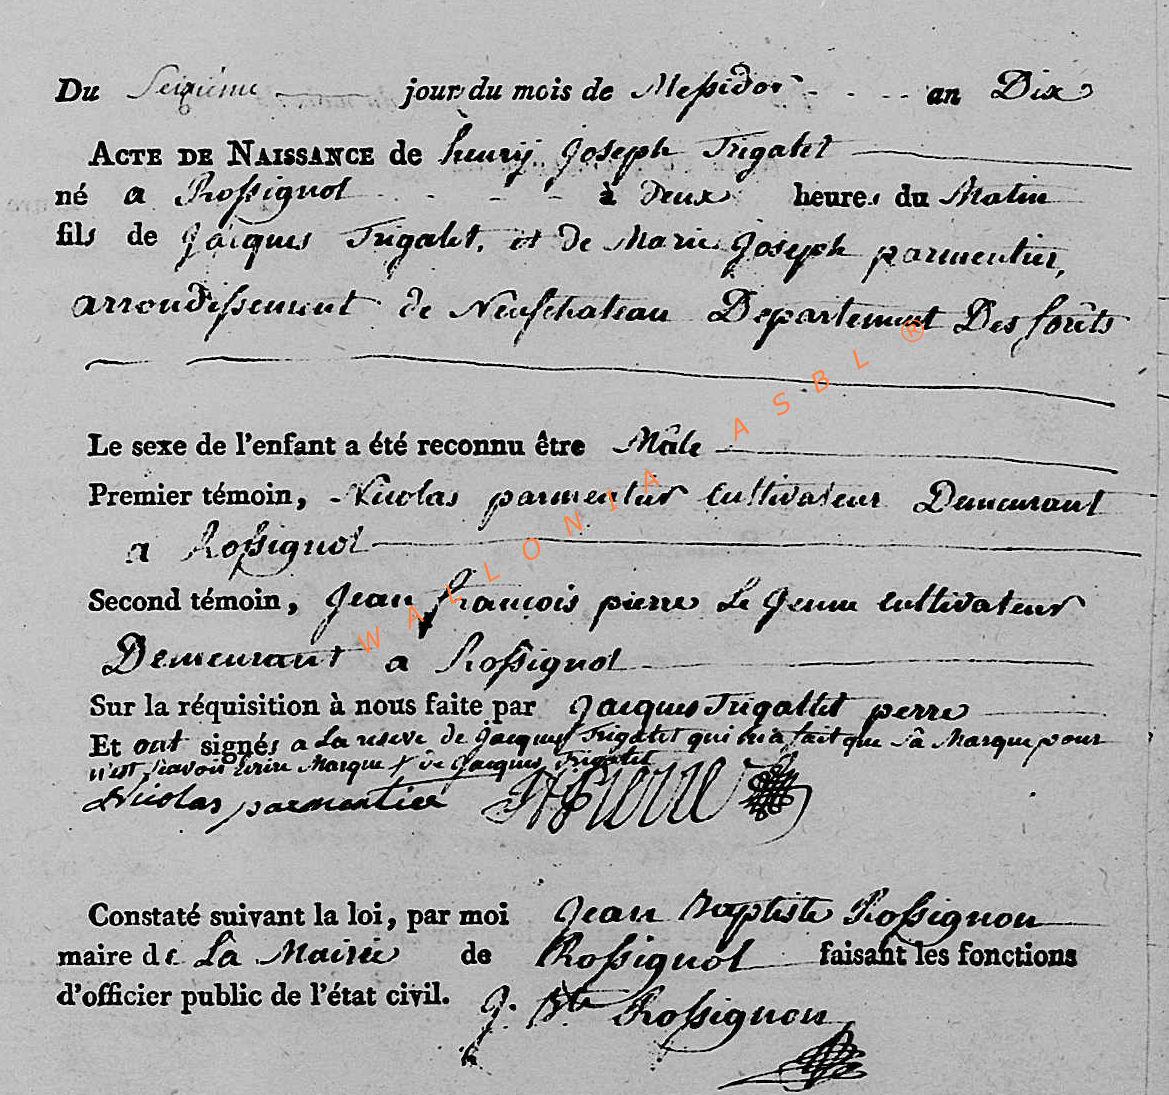 Du Seizieme jour du mois de Messidor an Dix
ACTE DE NAISSANCE de henry Joseph Trigalet
né a Rossignol à Deux heures du Matin
fils de Jacques Trigalet, et de Marie Joseph parmentier,
arrondissement de Neufchateau Departement Des forêts
Le sexe de l'enfant a été reconnu être Mâle
Premier témoin, Nicolas parmentier Cultivateur Demeurant
a Rossignol
Second témoin, Jean francois pierre Le Jeune Cultivateur
Demeurant a Rossignol
Sur la réquisition à nous faite par Jacques Trigallet perre
Et ont signés a La reserve de Jacques Trigalet qui n'a fait que sâ Marque pour
n'est scavoir Ecrire Marque de Jacques Trigalet
Nicolas parmentier Pierre
Constaté suivant la loi, par moi Jean Baptiste Rossignon
maire de La Mairie de Rossignol faisant les fonctions
d'officier public de l'état civil. J. Bte Rossignon
WALLONIA ASBL ®